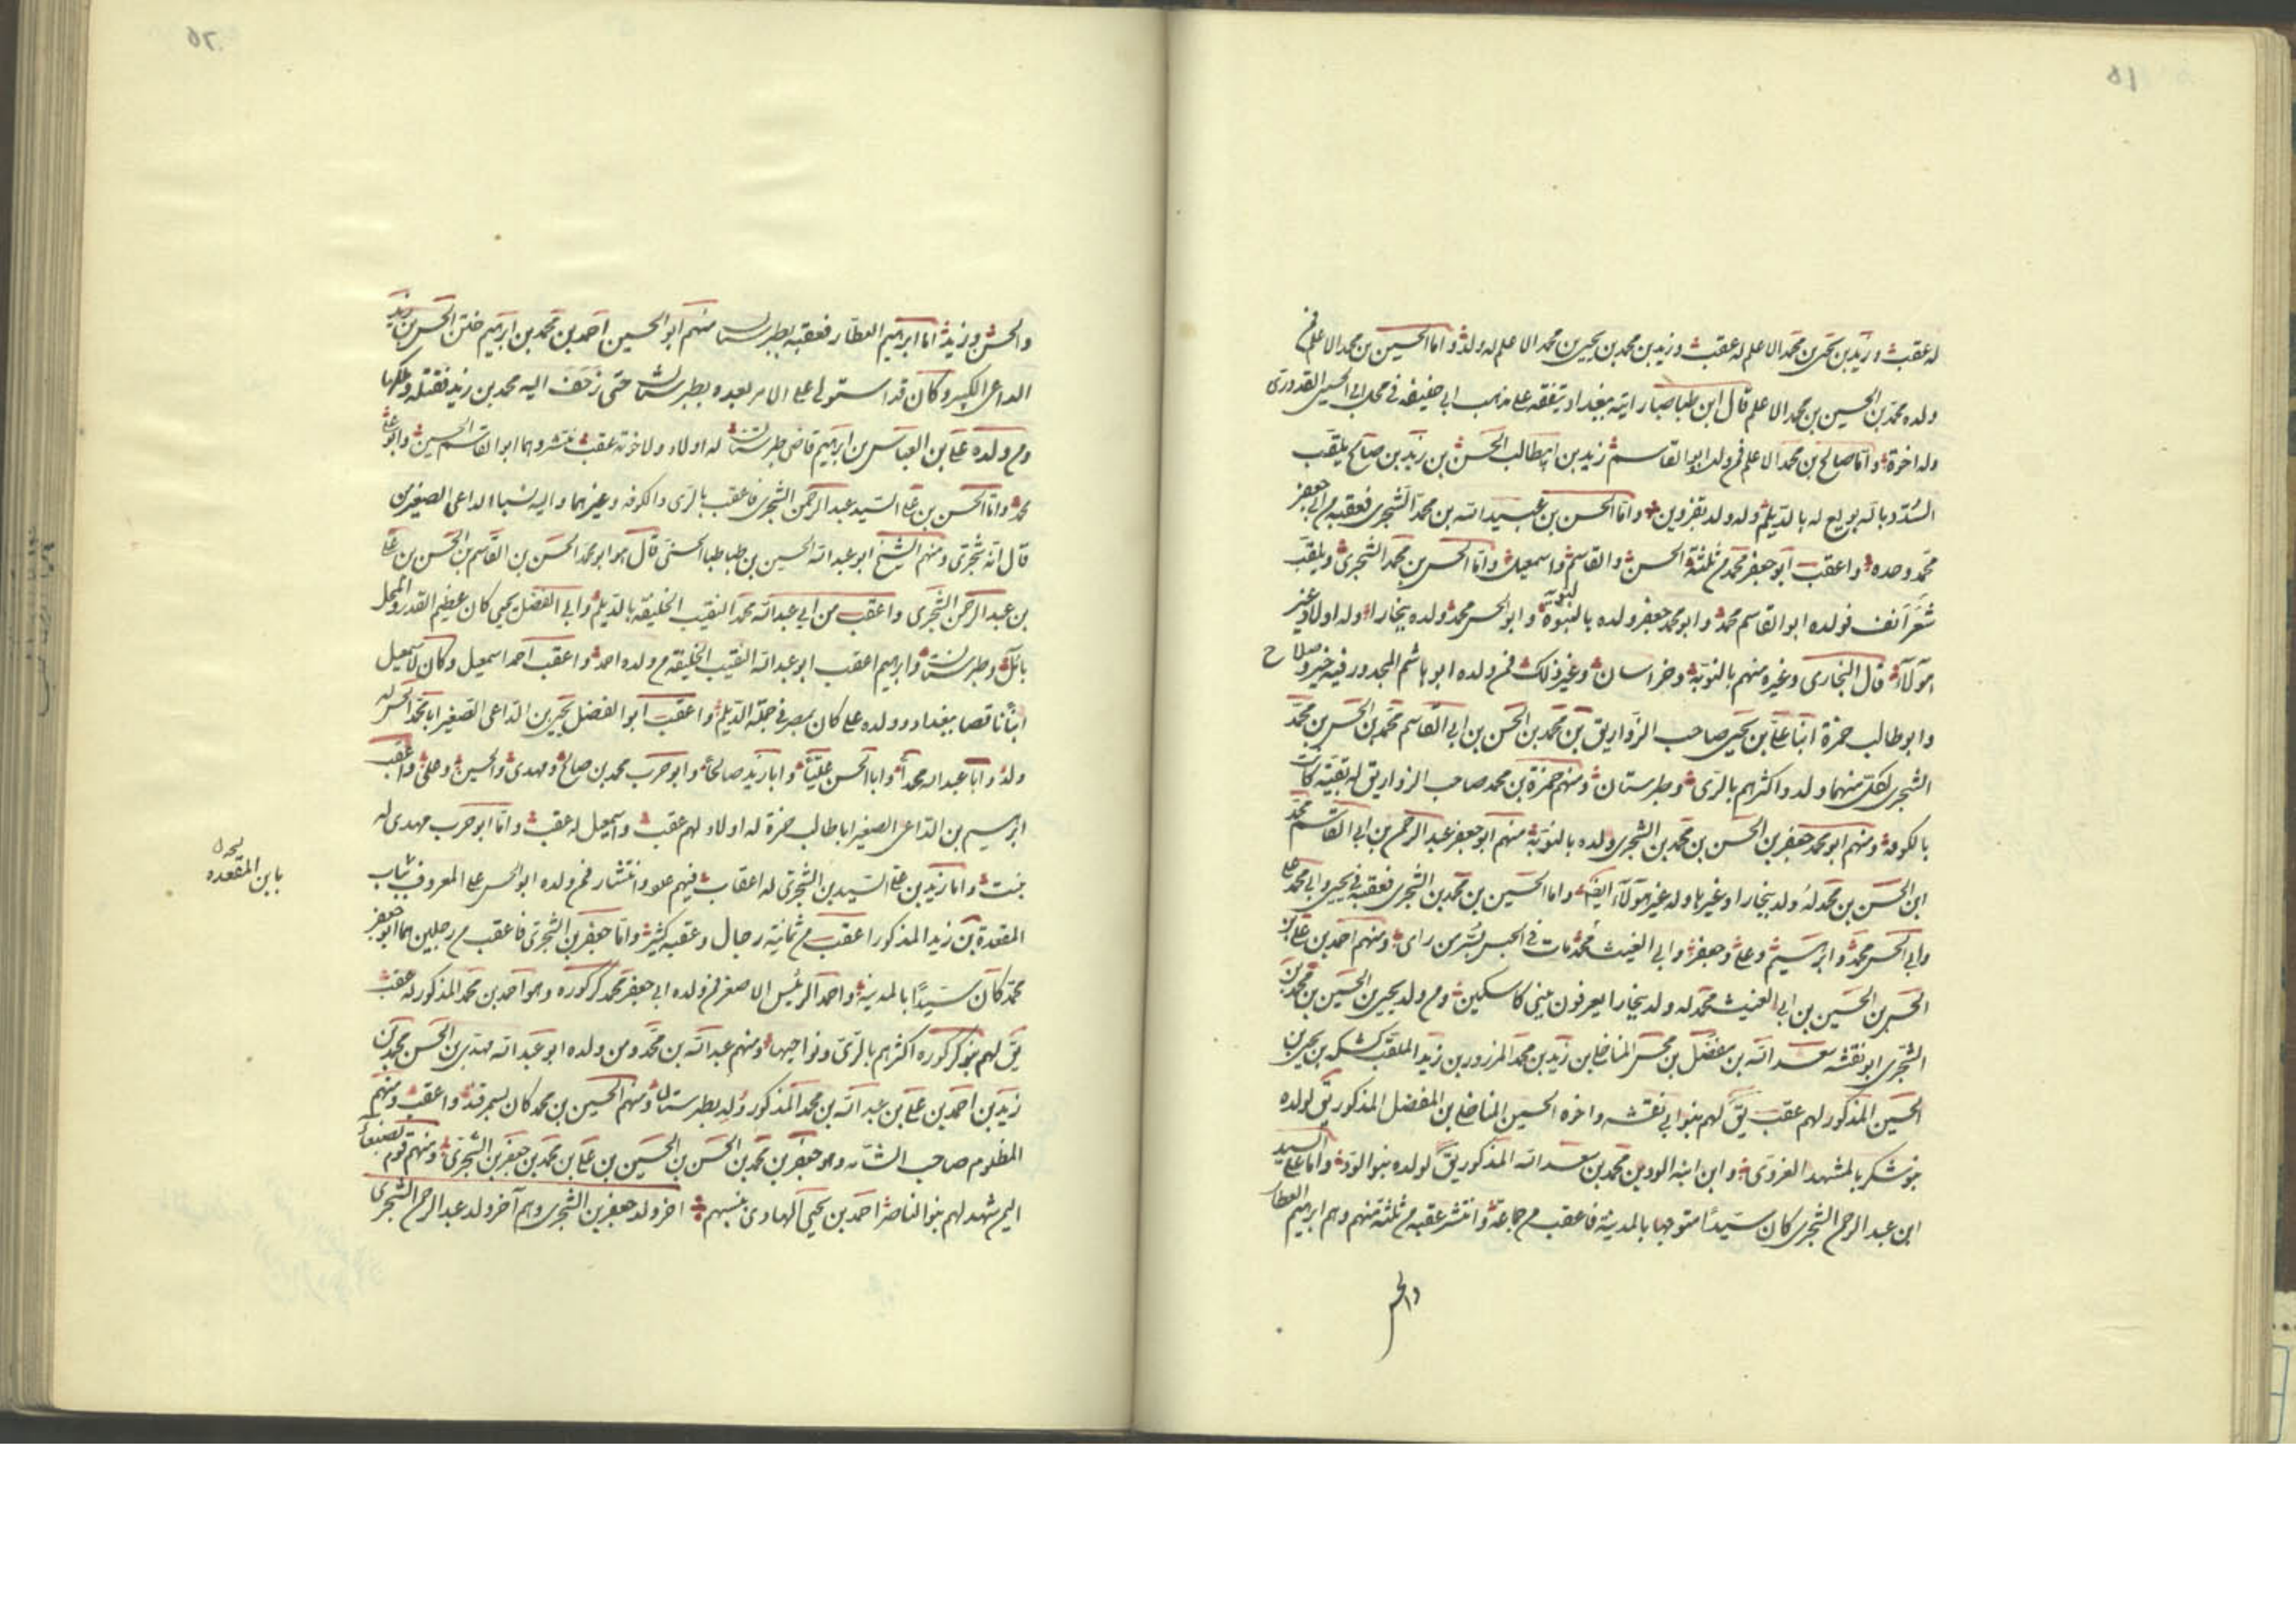 ١٥
له عقب وزيد بن يحيى بن محمد الاعلم له عقب وزيد بن محمد بن يحيى بن محمد الاعلم له ولد واما الحسين بن محمد الاعلم فمن
ولده محمد بن الحسين بن محمد الاعلم قال ابن طباطبا رايته ببغداد يتفقه على مذهب ابي حنيفه في مجلس ابي الحسين القدوري
وله اخوة واما صالح بن محمد الاعلم فمن ولده ابو القاسم زيد بن ابيطالب الحسن بن زيد بن صالح يلقب
بالله بويع له بالديلم وله ولد بقزوين واما الحسن بن عبيد الله بن محمد الشجري فعقبه من ابي جعفر
محمد وحده واعقب ابو جعفر محمد من ثلثة الحسن والقاسم واسمعيل واما الحسن بن محمد الشجري ويلقب
شعر انف فولده ابو القاسم محمد وابو محمد جعفر ولده بالنبوة وابو الحسن محمد ولده ببخارا وله اولاد غير
هؤلاء قال البخاري وغيره منهم بالنوبة وخراسان وغير ذلك فمن ولده ابو هاشم المجدور فيه خير وصلاح
وابو طالب حمزة ابنا علي بن يحيى صاحب الزواريق بن محمد بن الحسن بن ابي القاسم محمد بن الحسن بن محمد
الشجري لكل منهما ولد واكثرهم بالري وطبرستان ومنهم حمزة بن محمد صاحب الزواريق له بقية كانت
بالكوفه ومنهم ابو محمد جعفر بن الحسن بن محمد بن الشجري ولده بالنوبة منهم ابو جعفر عبد الرحمن بن ابي القاسم محمد
ابن الحسن بن محمد له ولد ببخارا وغيرها وله غير هؤلاء ايضا واما الحسين بن محمد بن الشجري فعقبه في يحيى وابي محمد علي
وابي الحسن محمد وابرهيم وعلي وجعفر وابي الغيث محمد مات في الحبس بسر من راى ومنهم احمد بن علي بن
الحسن بن الحسين بن ابي الغيث محمد له ولد ببخارا يعرفون ببني كاسكين ومن ولد يحيى بن الحسين بن محمد بن
الشجري ابو نقشه سعد الله بن مفضل بن محسن المناخلي بن زيد بن محمد المزرور بن زيد الملقب كشكه بن يحيى بن
الحسين المذكور لهم عقب يق لهم بنو ابي نقشه واخوه الحسين المناخلي بن المفضل المذكور يق لولده
بنو شكر بالمشهد الغروي وابن ابنه الود بن محمد بن سعد الله المذكور يق لولده بنو الود واما علي السيد
ابن عبد الرحمن الشجري كان سيدا متوجها بالمدينة فاعقب من جماعة وانتشر عقبه من ثلثة منهم وهم ابرهيم العطار
والحسن
٢٦
والحسن وزيد اما ابرهيم العطار فعقبه بطبرستان منهم ابو الحسين احمد بن محمد بن ابرهيم ختن الحسن بن زيد
الداعي الكبير وكان قد استولى على الامر بعده بطبرستان حتى زحف اليه محمد بن زيد فقتله وملكها
ومن ولده علي بن العباس بن ابرهيم قاضي طبرستان له اولاد ولاخوته عقب منتشر وهما ابو القاسم الحسين وابو علي
محمد واما الحسن بن علي السيد عبد الرحمن الشجري فاعقب بالري والكوفه وغيرهما واليه نسبا الداعي الصغير من
قال انه شجري ومنهم الشيخ ابو عبد الله الحسين بن طباطبا الحسني قال هو ابو محمد الحسن بن القاسم بن الحسن بن علي
بن عبد الرحمن الشجري واعقب من ابي عبد الله محمد النقيب الخليفة بالديلم وابي الفضل يحيى كان عظيم القدر والمحل
بآمل وطبرستان وابرهيم اعقب ابو عبد الله النقيب الخليفة من ولده احمد واعقب احمد اسمعيل وكان لاسمعيل
ابنا ناقصا ببغداد وولده علي كان بمصر في جملة الديلم واعقب ابو الفضل يحيى بن الداعي الصغير ابا محمد الحسن له
ولد وابا عبد الله محمدا وابا الحسن عليا وابا زيد صالحا وابو حرب محمد بن صالح ومهدي والحسين وعلي واعقب
ابرهيم بن الداعي الصغير ابا طالب حمزة له اولاد لهم عقب واسمعيل له عقب واما ابو حرب مهدي له
بنت واما زيد بن علي السيد بن الشجري له اعقاب فيهم علو وانتشار فمن ولده ابو الحسن علي المعروف
المقعدة بن زيد المذكور اعقب من ثمانية رجال وعقبه كثير واما جعفر بن الشجري فاعقب من رجلين هما ابو جعفر
محمد كان سيدا بالمدينة واحمد الرئيس الاصغر فمن ولده ابي جعفر محمد كركوره وهو احمد بن محمد المذكور له عقب
يق لهم بنو كركوره اكثرهم بالري ونواحيها ومنهم عبد الله بن محمد ومن ولده ابو عبد الله مهدي بن الحسن بن محمد بن
زيد بن احمد بن علي بن عبد الله بن محمد المذكور ولد بطبرستان ومنهم الحسين بن محمد كان بسمرقند واعقب ومنهم
المظلوم صاحب الشامه وهو جعفر بن محمد بن الحسن بن الحسين بن علي بن محمد بن جعفر بن الشجري ومنهم قوم بصنعاء
اليمن شهد لهم بنو الناصر احمد بن يحيى الهادي بنسبهم اخر ولد جعفر بن الشجري وهم آخر ولد عبد الرحمن الشجري
بابن المقعده